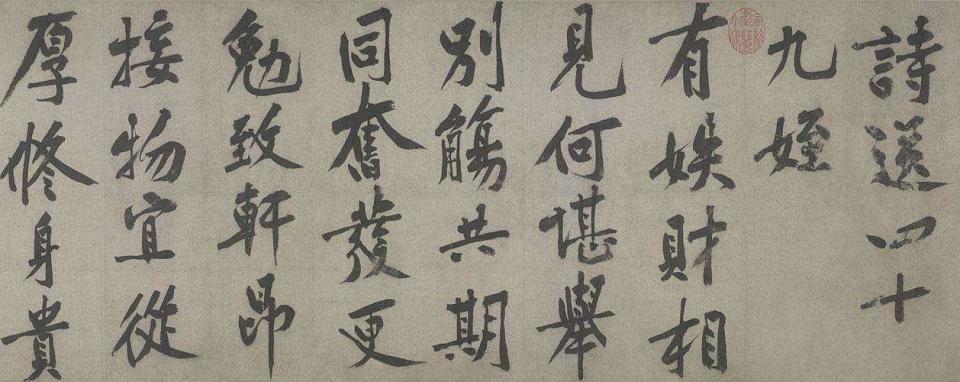 詩送四十
九姪
有娭財相
見何堪舉
別觴共期
同奮發更
勉致軒昂
接物宜從
厚修身貴